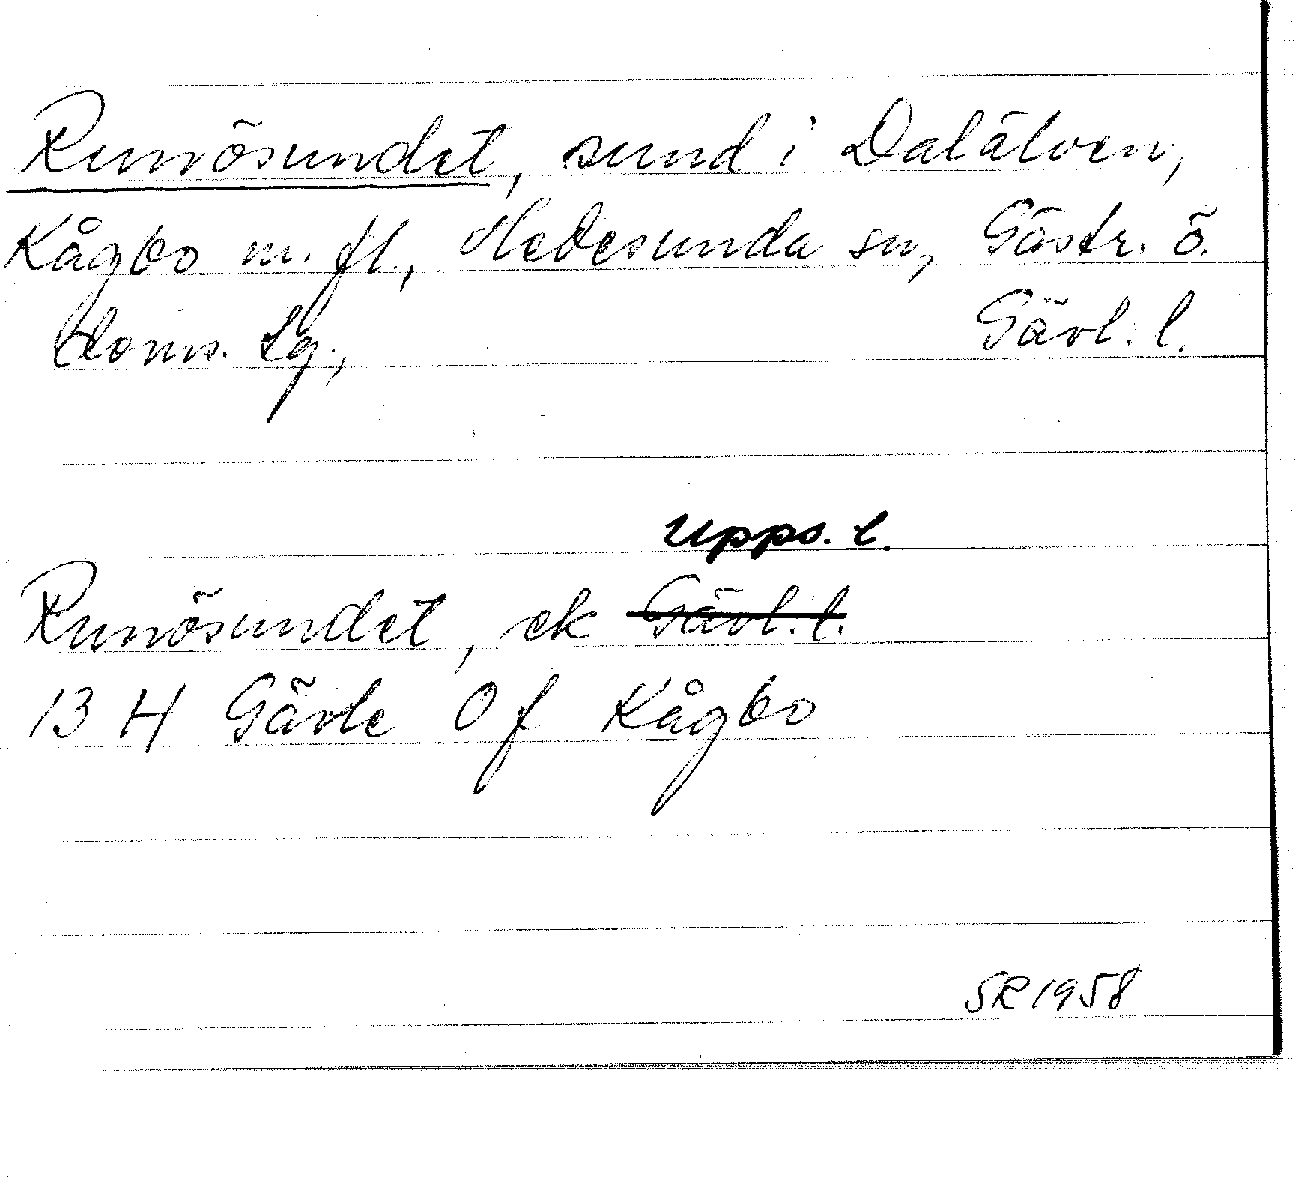 Runösundet, sund i Dalälven,
Kågbo m. fl., Hedesunda sn, Gästr. ö.
Homs. tg., Gävl. l.
Upps. l.
Runösundet, ek Gävl. l.
13 H Gävle 0 f Kågbo
SR 1958